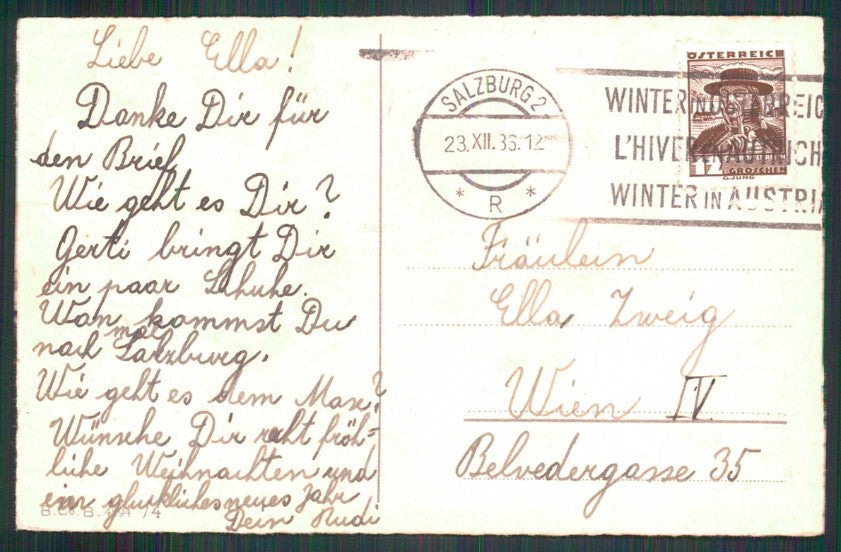 Liebe Ella!
Danke Dir für
den Brief.
Wie geht es Dir?
Gerti bringt Dir
ein paar Schuhe.
Wan kommst Du
mal
nach Salzburg.
Wie geht es dem Maxe?
Wünsche Dir recht fröh=
liche Weihnachten und
ein glückliches neues Jahr
Dein Rudi
SALZBURG 2
23.XII.36.12
* R *
WINTER IN ÖSTERREICH
L'HIVER EN AUTRICH
WINTER IN AUSTRIA
ÖSTERREICH
12 GROSCHEN
G.JUNG
Fräulein
Ella Zweig
Wien IV.
Belvedergasse 35